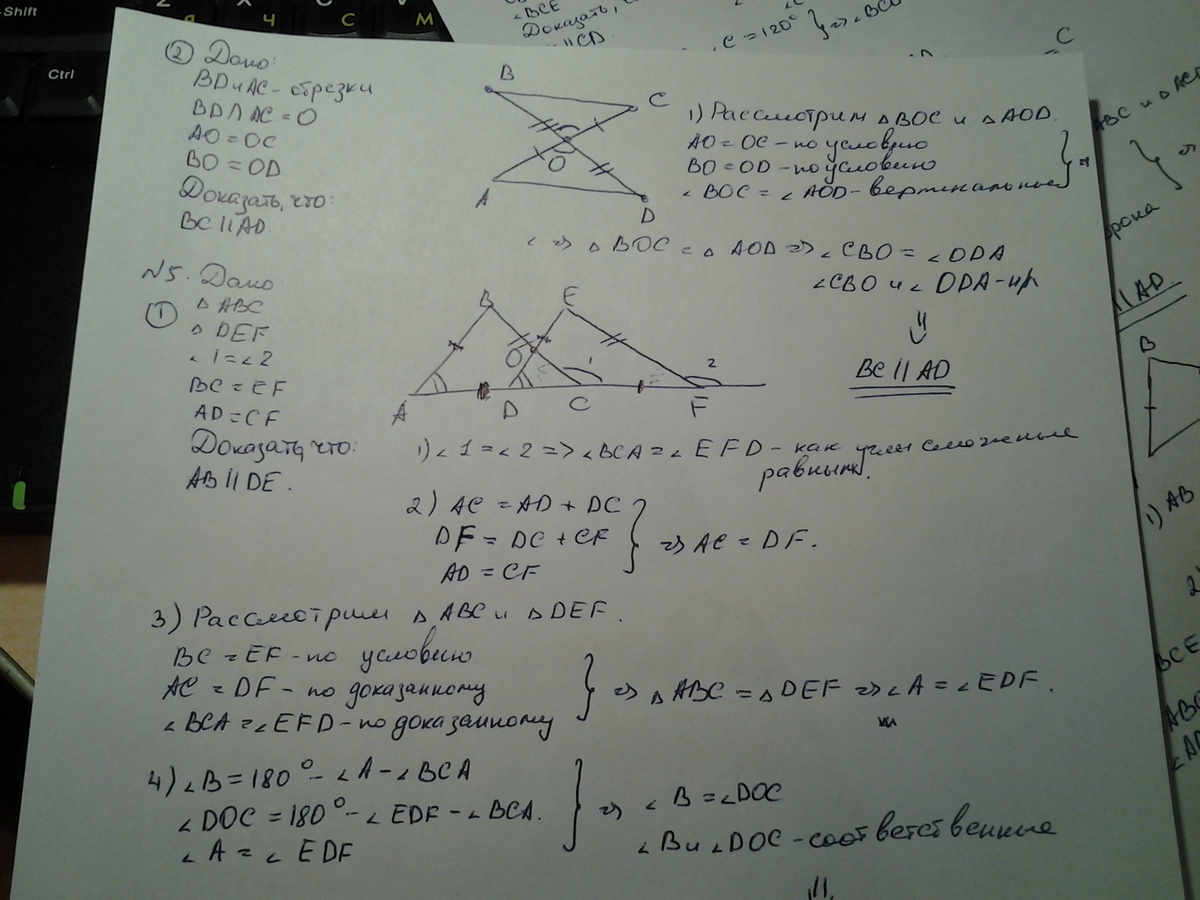 Shift
Ctrl
Z
Ч
С
М
∠BCE
Доказать,
∥CD
C = 120°
② Дано:
BD и AC - отрезки
BD ∩ AC = O
AO = OC
BO = OD
Доказать, что:
BC ∥ AD.
B
C
O
A
D
1) Рассмотрим △BOC и △AOD.
AO = OC - по условию
BO = OD - по условию
∠BOC = ∠AOD - вертикальные } ⇒
⇒ △BOC = △AOD ⇒ ∠CBO = ∠ODA
∠CBO и ∠ODA - нр
⇓
BC ∥ AD
N5. Дано
① △ABC
△DEF
∠1 = ∠2
BC = EF
AD = CF
Доказать, что:
AB ∥ DE.
B
E
O
1
2
A
D
C
F
1) ∠1 = ∠2 => ∠BCA = ∠EFD - как углы смежные
равным.
2) AC = AD + DC
DF = DC + CF } ⇒ AC = DF.
AD = CF
3) Рассмотрим △ABC и △DEF.
BC = EF - по условию
AC = DF - по доказанному } ⇒ △ABC = △DEF ⇒ ∠A = ∠EDF.
∠BCA = ∠EFD - по доказанному
4) ∠B = 180° - ∠A - ∠BCA
∠DOC = 180° - ∠EDF - ∠BCA. } ⇒ ∠B = ∠DOC
∠A = ∠EDF
∠B и ∠DOC - соответственные
⇓
C
ABC и △AC
∥ AD
B
1) AB
2
BCE
ABC